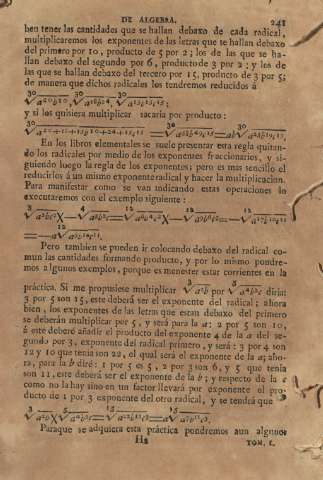 DE ALGEBRA. 241
ben tener las cantidades que se hallan debaxo de cada radical,
multiplicaremos los exponentes de las letras que se hallan debaxo
del primero por 10, producto de 5 por 2; los de las que se ha-
llan debaxo del segundo por 6, producto de 3 por 2; y los de
las que se hallan debaxo del tercero por 15, producto de 3 por 5;
de manera que dichos radicales los tendremos reducidos á
y si los quisiera multiplicar sacaria por producto:
En los libros elementales se suele presentar esta regla quitan-
do los radicales por medio de los exponentes fraccionarios, y si-
guiendo luego la regla de los exponentes; pero es mas sencillo el
reducirlos á un mismo exponente radical y hacer la multiplicacion.
Para manifestar como se van indicando estas operaciones lo
executaremos con el exemplo siguiente:
Pero tambien se pueden ir colocando debaxo del radical co-
mun las cantidades formando producto, y por lo mismo pondre-
mos algunos exemplos, porque es menester estar corrientes en la
práctica. Si me propusiese multiplicar por diria:
3 por 5 son 15, este deberá ser el exponente del radical; ahora
bien, los exponentes de las letras que estan debaxo del primero
se deberán multiplicar por 5, y será para la a: 2 por 5 son 10,
á este deberé añadir el producto del exponente 4 de la a del se-
gundo por 3, exponente del radical primero, y será: 3 por 4 son
12 y 10 que tenia son 22, el qual será el exponente de la a; aho-
ra, para la b diré: 1 por 5 es 5, 2 por 3 son 6, y 5 que tenia
son 11, este deberá ser el exponente de la b; y respecto de la c
como no la hay sino en un factor llevará por exponente el pro-
ducto de 1 por 3 exponente del otro radical, y se tendrá que
Paraque se adquiera esta práctica pondremos aun algunos
Hh TOM. I.